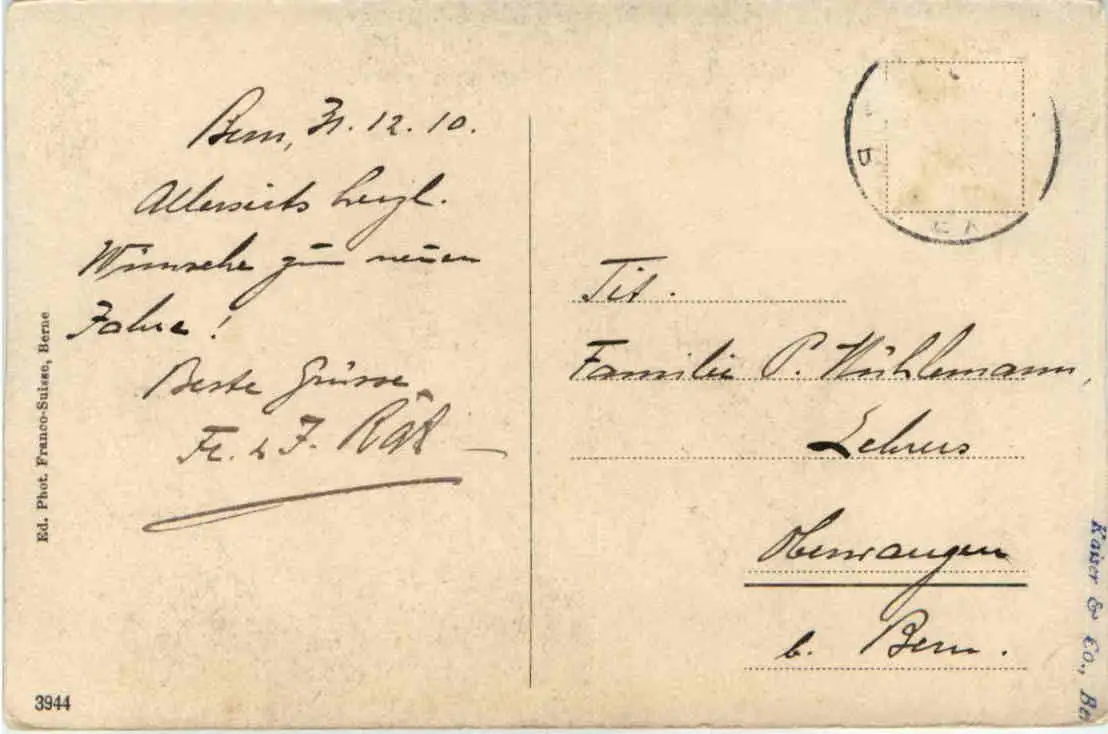 Bern, 31.12.10.
Allerseits herzl.
Wünsche zum neuen
Jahre!
Beste Grüsse
Fr. & J.
Tit.
Familie P. Mühlemann,
Lehrers
Oberwangen
b. Bern.
Ed. Phot. Franco-Suisse, Berne
3944
Kaiser & Co., Be